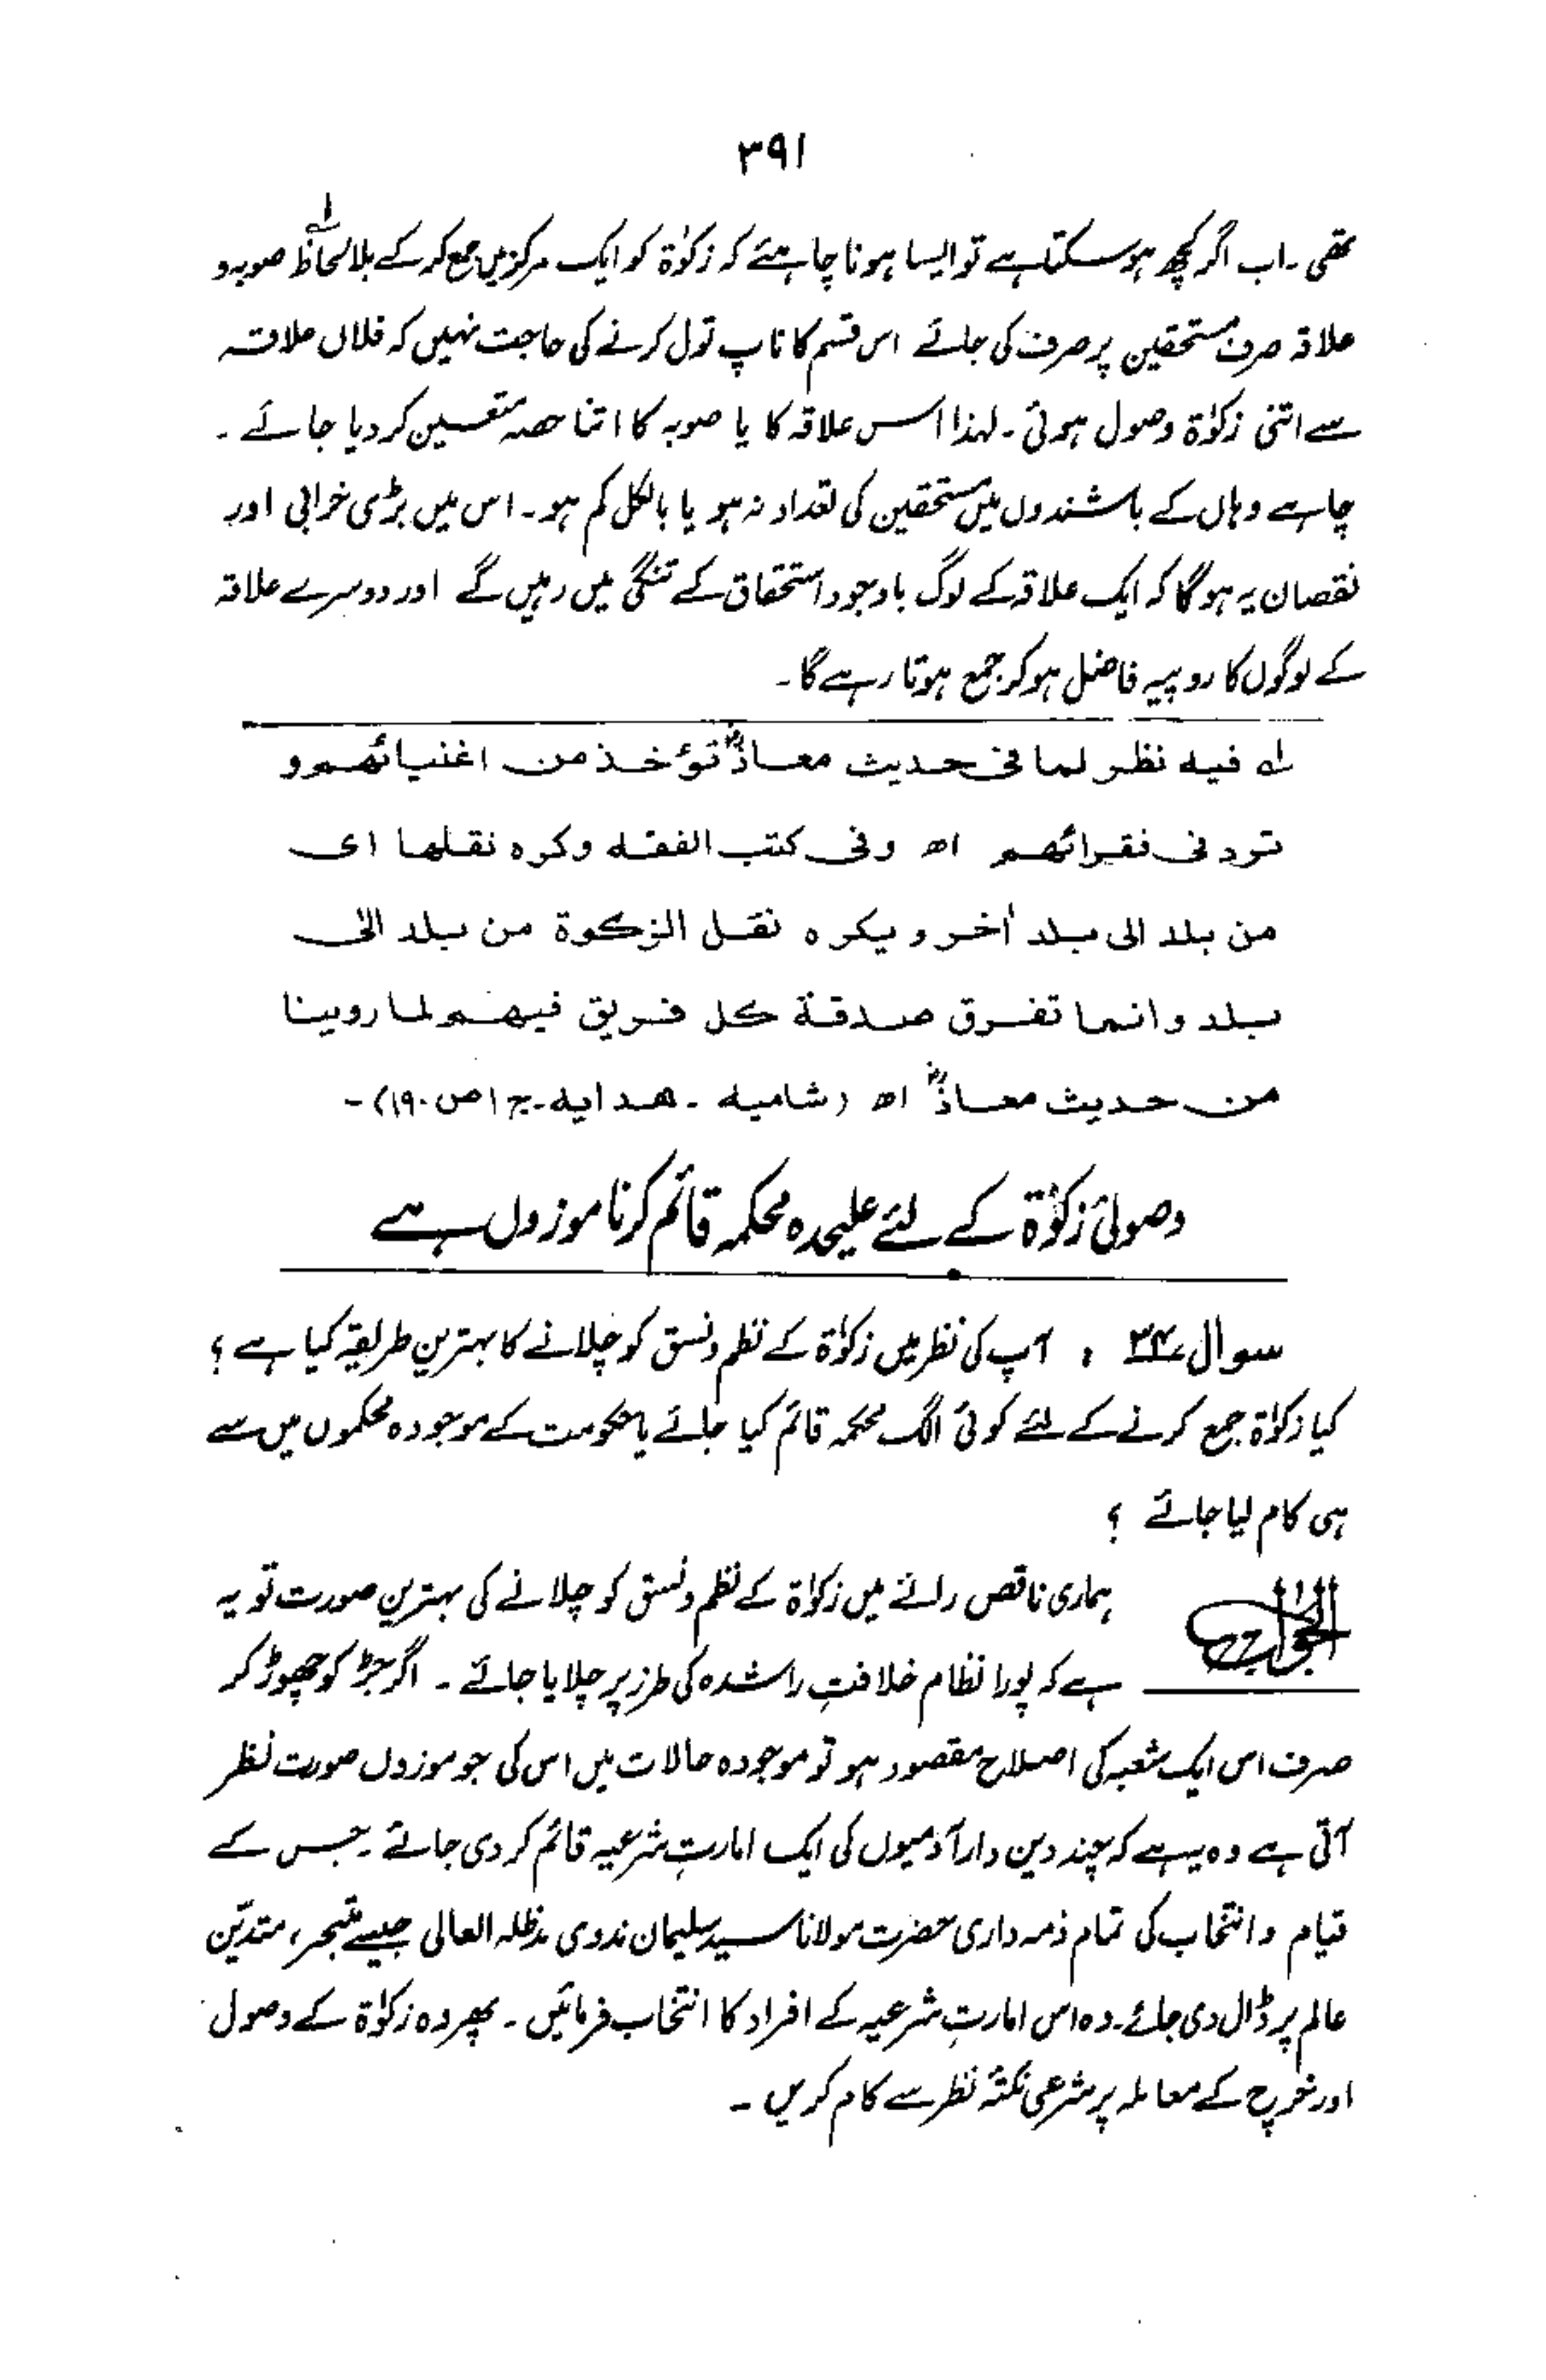 ۳۹۱
تھی ۔ اب اگر کچھ ہو سکتا ہے تو ایسا ہونا چاہئے کہ زکوٰۃ کو ایک مرکز میں جمع کر کے بلا لحاظ لہ صوبہ و
علاقہ صرف مستحقین پر صرف کی جائے اس قسم کا ناپ تول کرنے کی حاجت نہیں کہ فلاں علاقہ
سے اتنی زکوٰۃ وصول ہوئی ۔ لہذا اس علاقہ کا یا صوبہ کا اتنا حصہ متعین کر دیا جائے ۔
چاہے وہاں کے باشندوں میں مستحقین کی تعداد نہ ہو یا بالکل کم ہو ۔ اس میں بڑی خرابی اور
نقصان یہ ہوگا کہ ایک علاقہ کے لوگ باوجود استحقاق کے تنگی میں رہیں گے اور دوسرے علاقہ
کے لوگوں کا روپیہ فاضل ہو کر جمع ہوتا رہے گا ۔
لہ فیہ نظر لما فی حدیث معاذؓ تؤخذ من اغنیائھم و
ترد فی فقرائھم اھ وفی کتب الفقہ وکرہ نقلھا ای
من بلد الی بلد أخر و یکرہ نقل الزکوۃ من بلد الی
بلد و انما تفرق صدقۃ کل فریق فیھم لما روینا
من حدیث معاذؓ اھ (شامیہ ۔ ھدایہ ۔ ج ۱ ص ۱۹۰) ۔
وصولیٔ زکوٰۃ کے لئے علیحدہ محکمہ قائم کرنا موزوں ہے
سوال ۳۴ : آپ کی نظر میں زکوٰۃ کے نظم و نسق کو چلانے کا بہترین طریقہ کیا ہے ؟
کیا زکوٰۃ جمع کرنے کے لئے کوئی الگ محکمہ قائم کیا جائے یا حکومت کے موجودہ محکموں میں سے
ہی کام لیا جائے ؟
الجواب ہماری ناقص رائے میں زکوٰۃ کے نظم و نسق کو چلانے کی بہترین صورت تو یہ
ہے کہ پورا نظام خلافتِ راشدہ کی طرز پر چلایا جائے ۔ اگر جڑ کو چھوڑ کر
صرف اس ایک شعبہ کی اصلاح مقصود ہو تو موجودہ حالات میں اس کی جو موزوں صورت نظر
آتی ہے وہ یہ ہے کہ چند دین دار آدمیوں کی ایک امارتِ شرعیہ قائم کر دی جائے ۔ جس کے
قیام و انتخاب کی تمام ذمہ داری حضرت مولانا سید سلیمان ندوی مدظلہ العالی جیسے متبحر ، متدیّن
عالم پر ڈال دی جائے ۔ وہ اس امارتِ شرعیہ کے افراد کا انتخاب فرمائیں ۔ پھر وہ زکوٰۃ کے وصول
اور خرچ کے معاملہ پر شرعی نکتۂ نظر سے کام کریں ۔